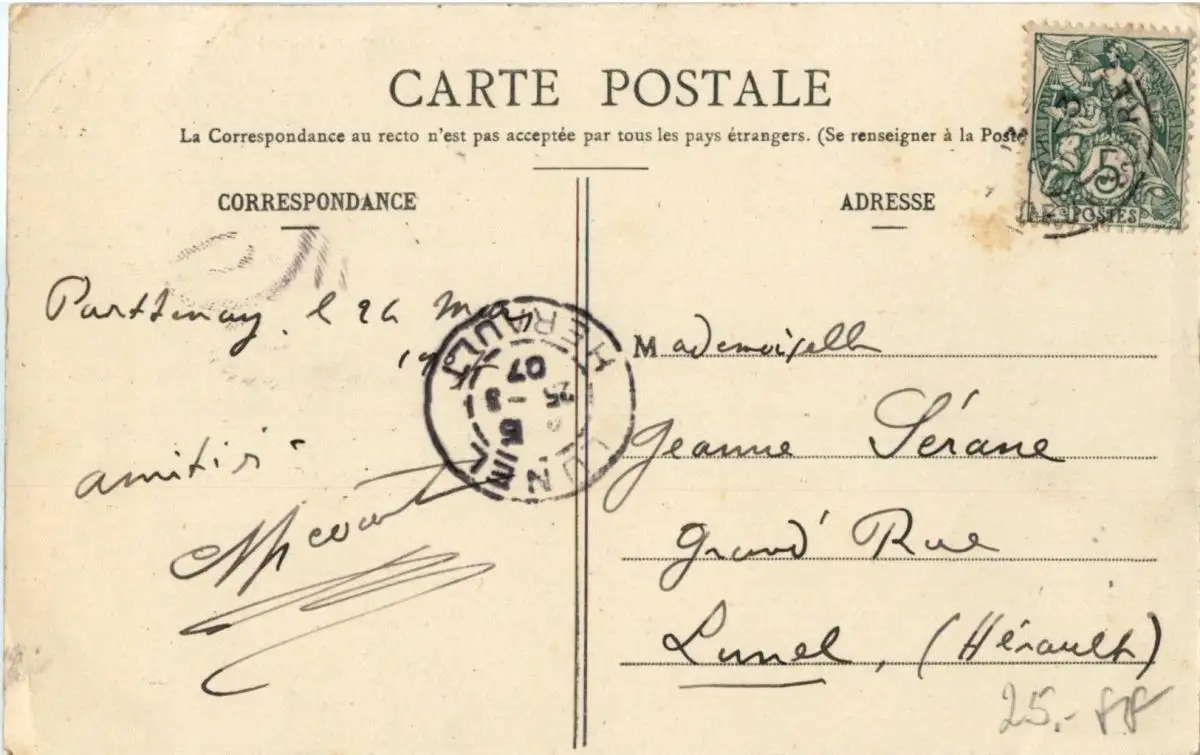 CARTE POSTALE
La Correspondance au recto n'est pas acceptée par tous les pays étrangers. (Se renseigner à la Poste
CORRESPONDANCE
ADRESSE
5
POSTES
Parthenay, le 26 Mai
amitiés
LUNEL
HERAULT
25 - 3
07
Mademoiselle
Jeanne Sérane
Grand' Rue
Lunel, (Hérault)
25.-